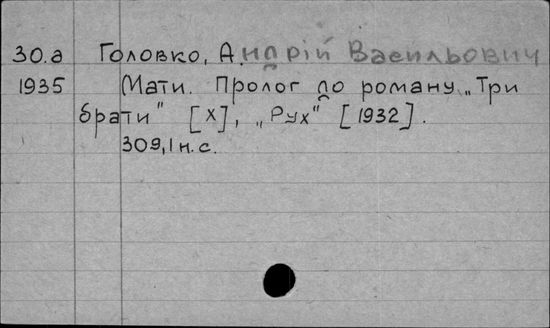 30.а Головко, Андрій Васильович
1935 Мати. Пролог до роману „Три
брати" [Х], „Рух" [1932].
309, 1 н. с.